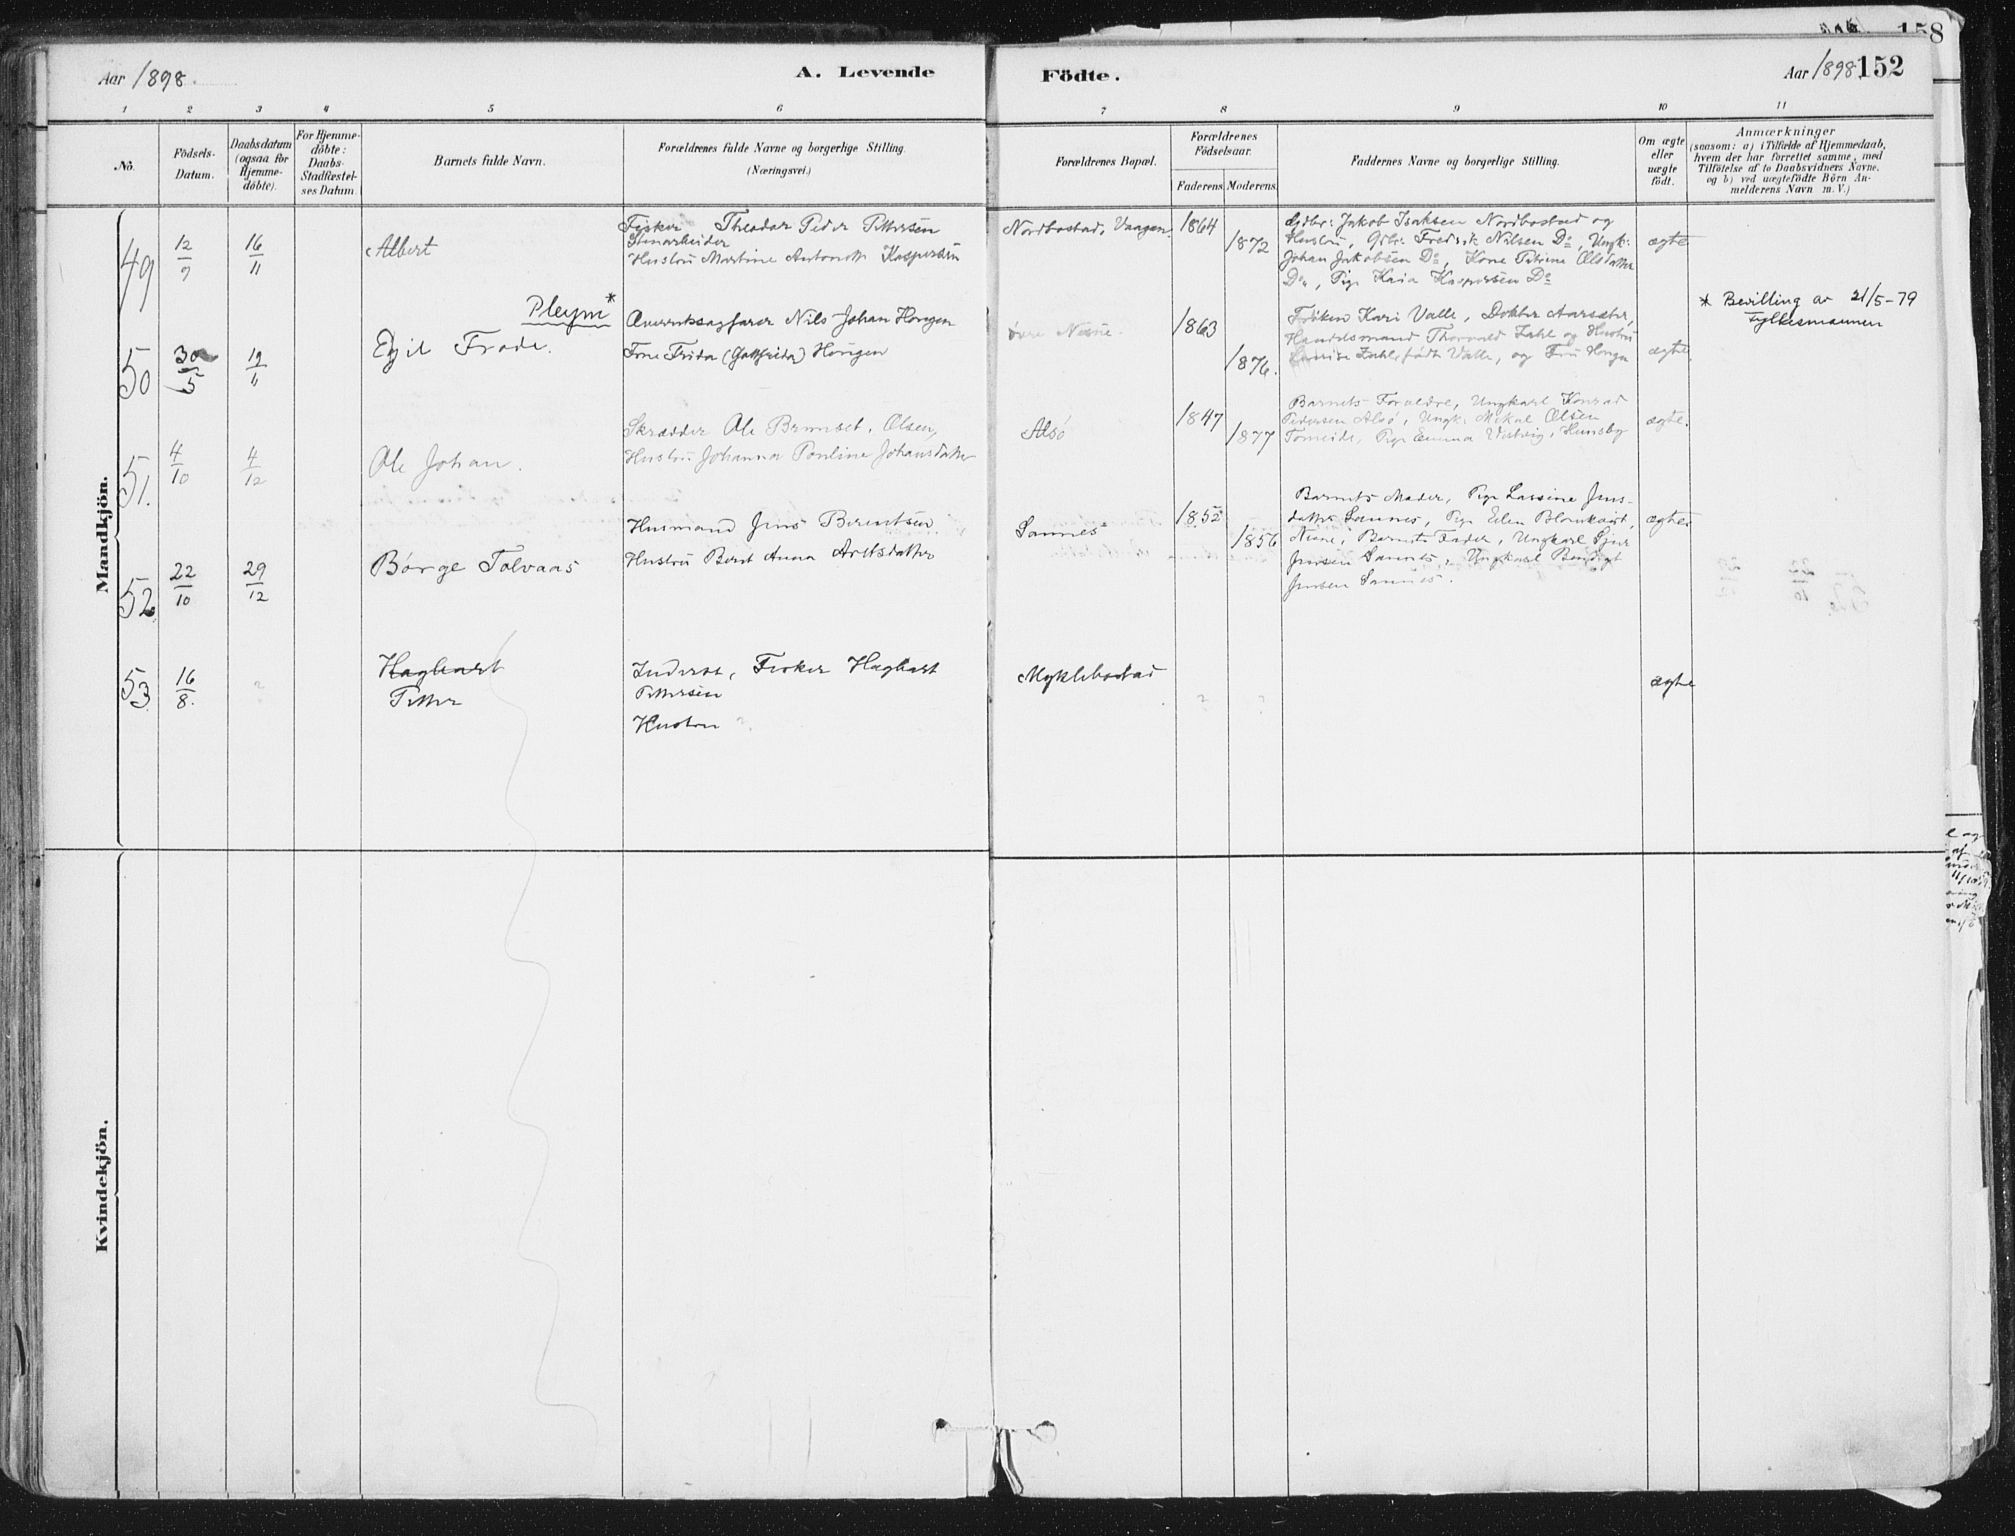 158
Aar 1898.
A. Levende
Födte.
Aar 1898
152
1 2 3 4 5 6 7 8 9 10 11
No.
Födsels-
Datum.
Daabsdatum
(ogsaa for
Hjemme-
döbte).
For Hjemme-
döbte:
Daabs-
Stadfæstel-
ses Datum.
Barnets fulde Navn.
Forældrenes fulde Navne og borgerlige Stilling.
(Næringsvei.)
Forældrenes Bopæl.
Forældrenes
Födselsaar.
Faderens.
Moderens.
Faddernes Navne og borgerlige Stilling.
Om ægte
eller
uægte
födt.
Anmærkninger
(saasom: a) i Tilfælde af Hjemmedaab,
hvem der har forrettet samme, med
Tilföielse af to Daabsvidners Navne.
og b) ved uægtefödte Börn An-
melderens Navn m. V.)
Mandkjön.
49
12/7
16/11
Albert
Fisker Theodor Peder Pettersen
Stenarbeider
Hustru Martine Antonette Kaspersen
Nordbostad, Vaagen.
1864
1872
Gdbr: Jakob Isaksen Nordbostad og
Hustru, Gdbr: Fredrik Nilsen Do, Ungk:
Johan Jakobsen Do, Kone Petrine Olsdatter
Do, Pige Karia Kaspersen Do
ægte
50
30/5
19/11
Pleym*
Egil Frode.
Overretssagfører Nils Johan Hongen
Tone Frida (Gottfrida) Hongen
Nesne.
1863
1876.
Frøken Kari Valle, Dokter Aarsæter,
Handelsmand Thorvald Zahl og Hustru
Zahl, født Valle, og Fru Hongen
ægte
* Bevilling av 21/5-79
Fylkesmannen
51.
4/10
4/12
Ole Johan.
Skrædder Ole Olsen,
Hustru Johanna Pauline Johansdatter
Alsø
1847
1877
Barnets Forældre, Ungkarl Konrad
Pedersen Alsø, Ungk: Mikal Olsen
Pige Emma
ægte.
52.
22/10
29/12
Børge Tolvaas
Husmand Jens Berentsen
Hustru Berit Anna Arntsdatter
Sannes
1852
1856
Barnets Moder, Pige Lassine Jens-
datter Sannes, Pige Elen Blomkvist,
Nesne, Barnets Fader, Ungkarl
Jensen Sannes, Ungkarl Bendigt
Jensen Sannes.
ægte
53.
16/8.
?
Hagbart
Petter
Inderst, Fisker Hagbart
Pettersen
Hustru ?
Myklebostad
?
?
ægte
Kvindekjön.